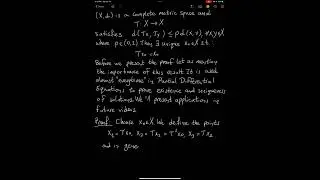 (X,d) is a complete metric space and
T: X → X
satisfies d(Tx, Ty) ≤ ρ d(x,y) ∀x,y∈X
where ρ∈(0,1) Then ∃ unique x₀∈X s.t.
Tx₀ = x₀
Before we present the proof let us mention
the importance of this result. It is used
almost "everywhere" in Partial Differential
Equations to prove existence and uniqueness
of solutions. We'll present applications in
future videos.
Proof: Choose x₀∈X. We define the points
x₁ = Tx₀, x₂ = Tx₁ = T²x₀, x₃ = Tx₂
and in gener